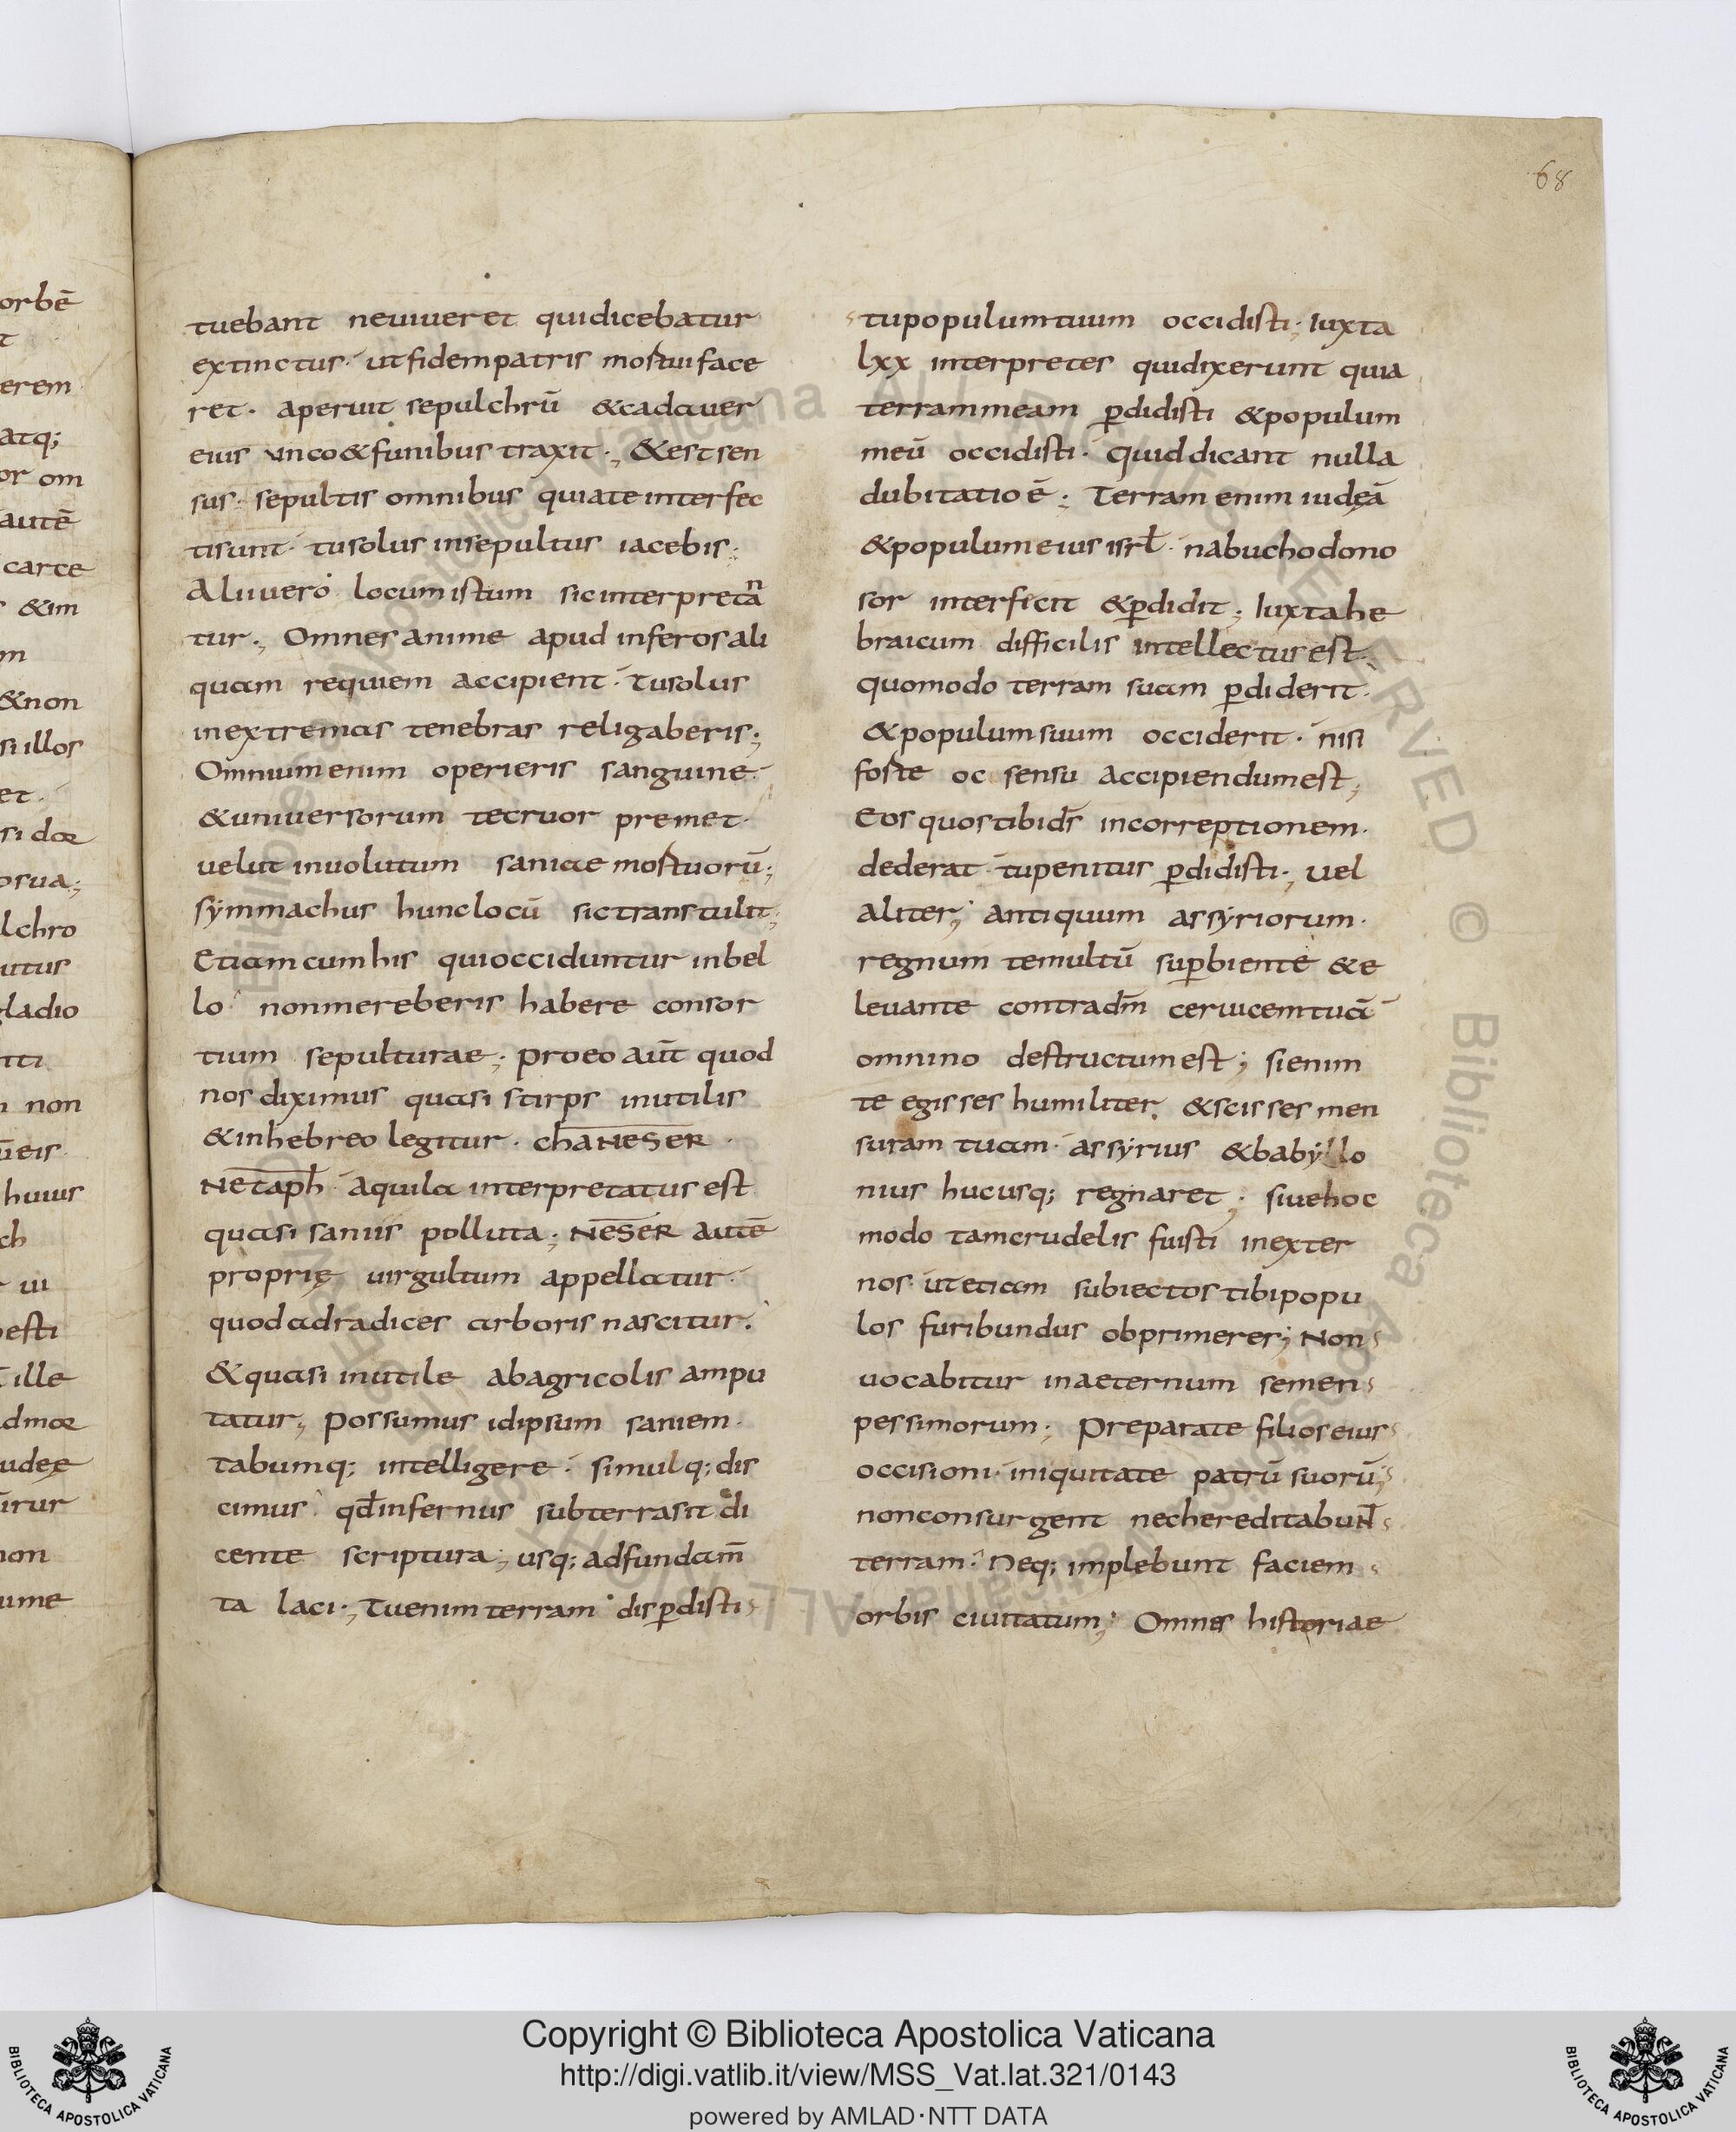 68
orbē
t
erem
atq;
or om
autē
carce
r &im
m
&non
si illos
et.
si doe
osua;
lchro
utus
gladio
tti
n non
ūeis
huius
ch
r ui
pesti
t ille
dmoe
udeę
irur
non
ume
tuebant neuiueret quidicebatur
extinctus· utfidempatris mortuiface
ret· aperuit sepulchrū &cadauer
eius unco&funibus traxit·; &estsen
sus· sepultis omnibus quiateinterfec
tisunt· tusolus insepultus iacebis;
Aliivero locumistum sicinterpretan
tur·; Omnesanime apud inferosali
quam requiem accipient· tusolus
inextremas tenebras religaberis·;
Omniumenim operieris sanguine·
&uniuersorum tecruor premet·
uelut inuolutum saniae mortuorū·;
symmachus hunclocū sictranstulit·;
Etiamcumhis quiocciduntur inbel
lo· nonmereberis habere consor
tium sepulturae·; proeo aūt quod
nos diximus quasi stirps inutilis
&inhebreo legitur· chaNESER·
Netaph· aquila interpretatus est
quasi saniis polluta·; NESER autē
proprię uirgultum appellatur·
quodadradices arboris nascitur·
&quasi inutile abagricolis ampu
tatur·; possumus idipsum saniem·
tabumq; intelligere· simulq; dis
cimus· qd̄infernus subterrasit· di
cente scriptura·; usq; adfundam̄
ta laci·; Tuenim terram· disp̄disti
tupopulumtuum occidisti·; Iuxta
lxx interpretes quidixerunt quia
terrammeam p̄didisti &populum
meū occidisti· quiddicant nulla
dubitatio ē·; Terram enim iudęā
&populumeius isrł· nabuchodono
sor interficit &p̄didit·; Iuxtahe
braicum difficilis intellectusest·
quomodo terram suam p̄diderit·
&populumsuum occiderit· nisi
forte oc sensu accipiendumest·;
Eos quostibids̄ incorreptionem·
dederat· tupenitus p̄didisti·; uel
aliter·; antiquum assyriorum·
regnum temultū sup̄biente &e
leuante contradm̄ ceruicemtuā·
omnino destructumest·; sienim
te egisses humiliter· &scisses men
suram tuam· assyrius &babylo
nius hucusq; regnaret·; siuehoc
modo tamcrudelis fuisti inexter
nos· utetiam subiectos tibipopu
los furibundus obprimeres·; Non
uocabitur inaeternum semen
pessimorum·; Preparate filioseius
occisioni· iniquitate patrū suorū·;
nonconsurgent nechereditabunt
terram· Neq; implebunt faciem
orbis ciuitatum·; Omnes historiae
Copyright © Biblioteca Apostolica Vaticana
http://digi.vatlib.it/view/MSS_Vat.lat.321/0143
powered by AMLAD·NTT DATA
BIBLIOTECA APOSTOLICA VATICANA
BIBLIOTECA APOSTOLICA VATICANA